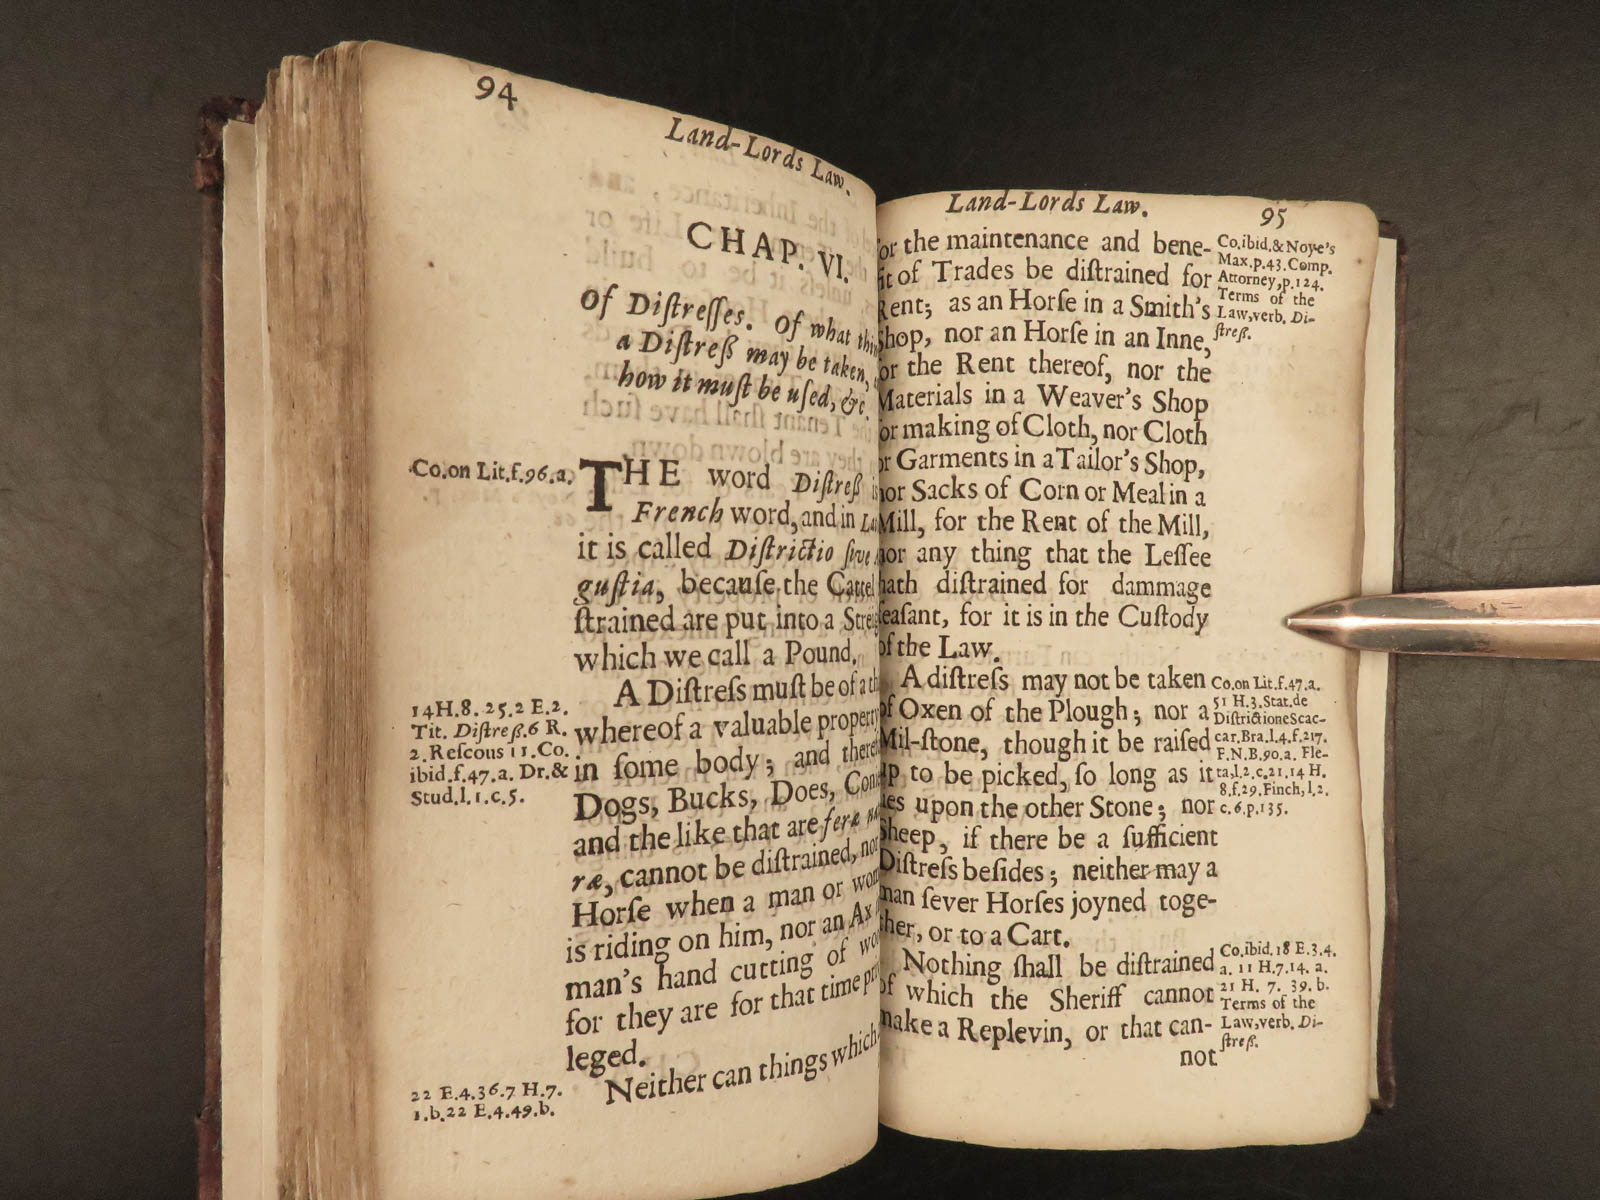 94
Land-Lords Law.
CHAP. VI.
Of Diſtreſſes. Of what
a Diſtreß may be taken,
how it muſt be uſed, &c.
Co. on Lit. f. 96. a.
THE word Diſtreß
French word, and in
it is called Diſtrictio ſive
guſtia, becauſe the Cattel
ſtrained are put into a
which we call a Pound.
A Diſtreſs muſt be of a
14 H. 8. 25. 2 E. 2.
Tit. Diſtreß. 6 R.
2. Reſcous 11. Co.
ibid. f. 47. a. Dr. &
Stud. l. 1. c. 5.
whereof a valuable property
in ſome body; and
Dogs, Bucks, Does,
and the like that are feræ
ræ, cannot be diſtrained, nor
Horſe when a man or
is riding on him, nor an Ax
man's hand cutting of
for they are for that time
leged.
22 E. 4. 36. 7 H. 7.
1. b. 22 E. 4. 49. b.
Neither can things which
Land-Lords Law.
95
for the maintenance and bene-
fit of Trades be diſtrained for
Rent; as an Horſe in a Smith's
Shop, nor an Horſe in an Inne,
for the Rent thereof, nor the
Materials in a Weaver's Shop
for making of Cloth, nor Cloth
or Garments in a Tailor's Shop,
nor Sacks of Corn or Meal in a
Mill, for the Rent of the Mill,
nor any thing that the Leſſee
hath diſtrained for dammage
feaſant, for it is in the Cuſtody
of the Law.
Co. ibid. & Noye's
Max. p. 43. Comp.
Attorney, p. 124.
Terms of the
Law, verb. Di-
ſtreß.
A diſtreſs may not be taken
of Oxen of the Plough; nor a
Mil-ſtone, though it be raiſed
up to be picked, ſo long as it
lies upon the other Stone; nor
Sheep, if there be a ſufficient
Diſtreſs beſides; neither may a
man ſever Horſes joyned toge-
ther, or to a Cart.
Co. on Lit. f. 47. a.
51 H. 3. Stat. de
Diſtrictione Scac-
car. Bra. l. 4. f. 217.
F. N. B. 90. a. Fle-
ta, l. 2. c. 21. 14 H.
8. f. 29. Finch, l. 2.
c. 6. p. 135.
Nothing ſhall be diſtrained
of which the Sheriff cannot
make a Replevin, or that can-
not
Co. ibid. 18 E. 3. 4.
a. 11 H. 7. 14. a.
21 H. 7. 39. b.
Terms of the
Law, verb. Di-
ſtreß.